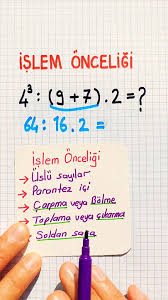 İŞLEM ÖNCELİĞİ
4³ : (9+7) . 2 = ?
64 : 16 . 2 =
İşlem Önceliği
→ Üslü sayılar
→ Parantez içi
→ Çarpma veya Bölme
→ Toplama veya çıkarma
→ Soldan sağa